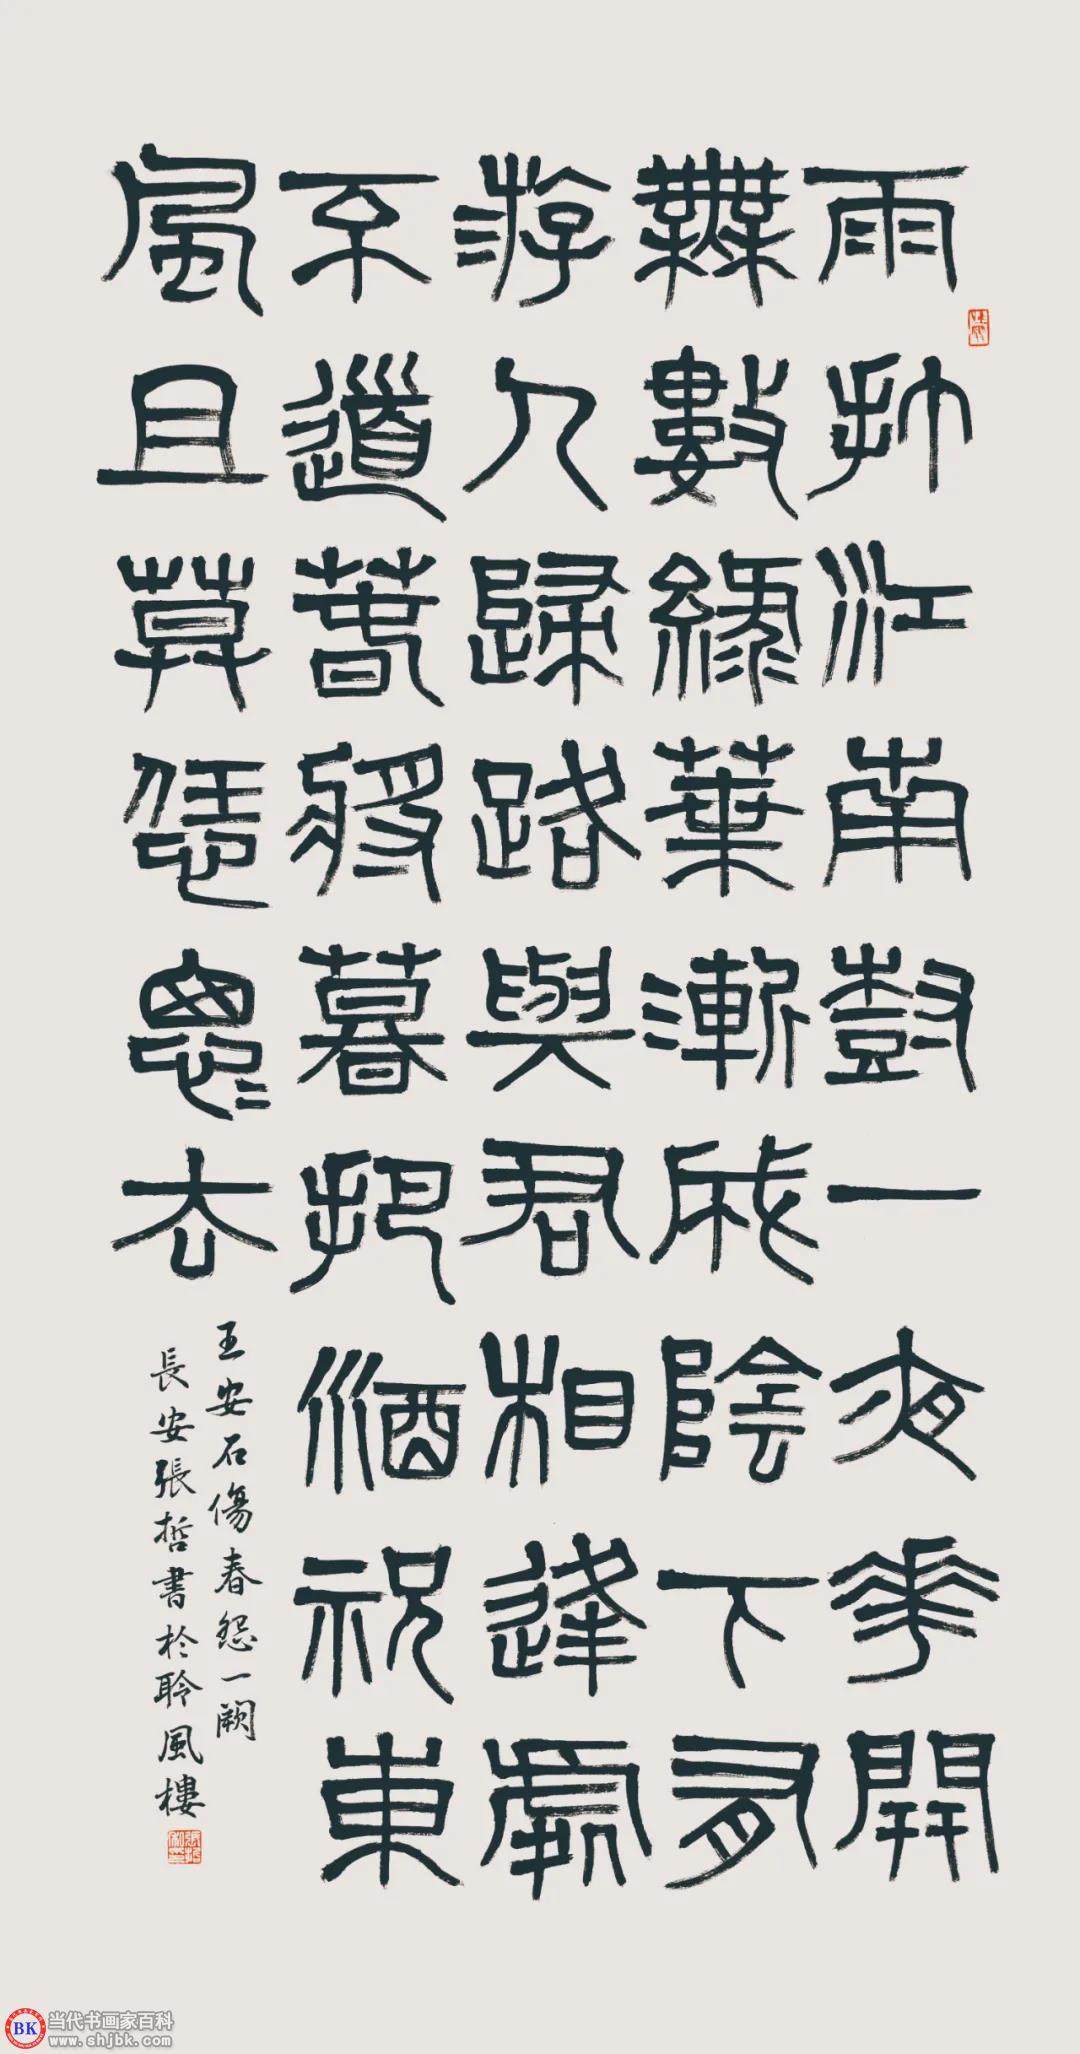 雨打江南尌一夜花開
無數綠葉漸成陰下有
游人歸路與君相逢處
不道春將暮把酒祝東
風且莫恁悤〻去
王安石傷春怨一闋
長安張哲書於聆風樓
BK 当代书画家百科
www.shjbk.com